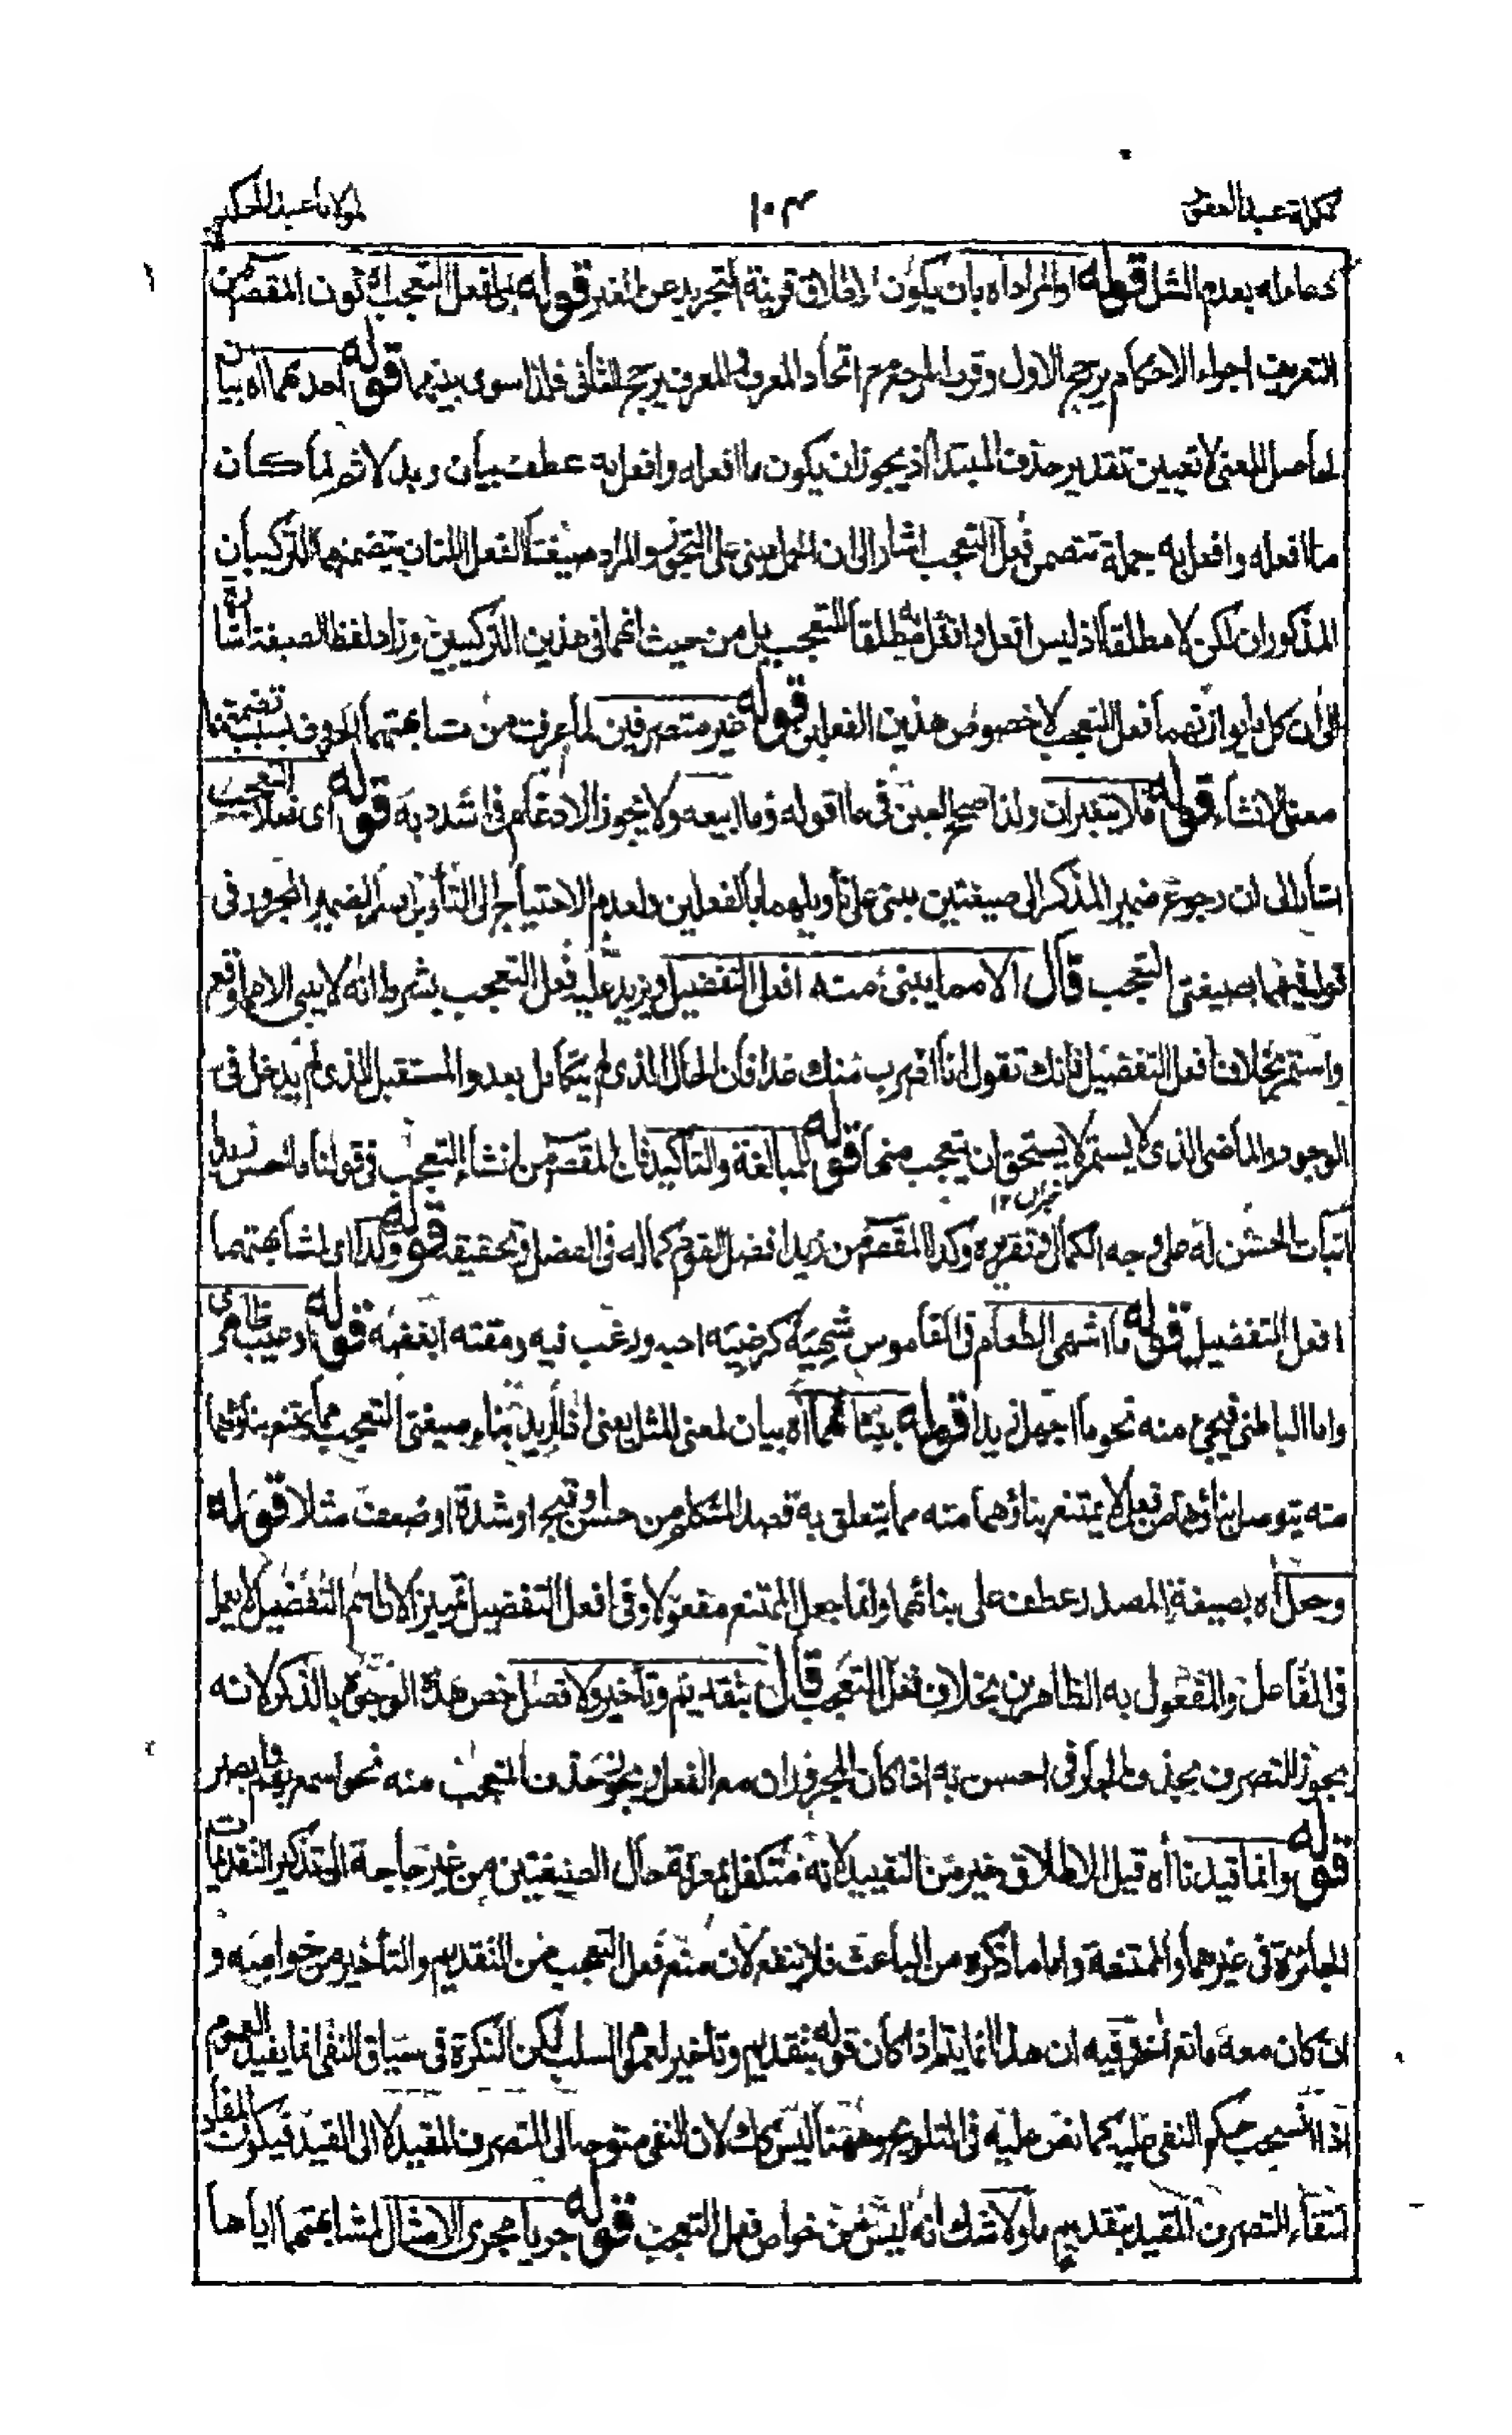 تكملة عبد الغفور
١٠٣
لمولانا عبد الحكيم
دعا مله بعدم الشل قوله او المراد اه بان يكون الاطلاق قرينة التجريد عن المغير قوله على افعل التعجب لكون المقصر من
التعريف اجراء الاحكام يرجح الاول وقرب المرجع مع اتحاد المعرف والمعرف يرجح الثاني فلذا سوى بينهما قوله احدهما اه بيان
لحاصل المعنى لا تعيين تقدير حذف المبتدأ اذ يجوز ان يكون ما افعله وافعل به عطف بيان وبدلا ثم لما كان
ما افعله وافعل به جملة تتضمن فعل التعجب اشار الى ان الحمل مبنى على التجوز والمراد صيغتا الفعل اللتان يتضمنهما التركيبان
المذكوران لكن لا مطلقا اذ ليس افعل وافعل مطلقا للتعجب بل من حيث انهما في هذين التركيبين وزاد لفظ الصيغة اشارة
الى ان كل ما يوازنهما فعل التعجب لا خصوص هذين الفعلين قوله غير متصرفين لما عرفت من مشابهتهما الحروف بسبب تضمنهما
معنى الانشاء قوله فلا يتغيران ولذا صحح العين في ما اقوله وما ابيعه ولا يجوز الادغام في اشدد به قوله اى فعلا التعجب
اشار الى ان رجوع ضمير المذكر الى صيغتين مبنى على تأويلهما بالفعلين ولعدم الاحتياج الى التأويل فسر الضمير المجرور في
قوله فيهما بصيغتى التعجب قال الا مما يبنى منه افعل التفضيل ويزيد عليه فعل التعجب بشرط انه لا يبنى الا مما وقع
واستمر بخلاف افعل التفضيل فانك تقول انا اقرب منك غدا فان الحال الذى لم يتكامل بعد والمستقبل الذى لم يدخل في
الوجود والماضى الذى لا يستمر لا يستحق ان يتعجب منها قوله للمبالغة والتأكيد فان المقصر من انشاء التعجب في قولنا ما احسن زيدا
اثبات الحسن له على وجه الكمال وتقريره وكذا المقصر من زيد افضل القوم كماله في الفضل وتحقيقه قوله ولذا اى لمشابهتهما
افعل التفضيل قوله ما اشهى الطعام في القاموس شهيه كرضيه احبه ورغب فيه ومقته ابغضه قوله او عيب ظاهرى
واما الباطنى فيجئ منه نحو ما اجهل زيدا قوله بيانهما اه بيان لمعنى المثل يعنى اذا اريد بناء صيغتى التعجب مما يمتنع بناؤهما
منه يتوصل ببنائهما من فعل لا يمتنع بناؤهما منه مما يتعلق به قصد المتكلم من حسن او قبح او شدة او ضعف مثلا قوله
وجعل اه بصيغة المصدر عطف على بنائهما وانما جعل الممتنع مفعولا وفي افعل التفضيل تمييزا لان اسم التفضيل لا يعمل
في الفاعل والمفعول به الظاهرين بخلاف فعل التعجب قال بتقديم وتأخير ولا فصل خص هذه الوجوه بالذكر لانه
يجوز التصرف بحذف الجار في احسن به اذا كان المجرور ان مع الفعل ويجوز حذف المتعجب منه نحو اسمع بهم وابصر
قوله وانما قيدنا اه قيل الاطلاق خير من التقييد لانه متكفل بمعرفة حال الصيغتين من غير حاجة الى تذكير التقديمات
الجائزة في غيرهما والممتنعة واما ما ذكره من الباعث فلا ينفع لان منع فعل التعجب من التقديم والتأخير من خواصه و
ان كان معه مانع اخر وفيه ان هذا انما يتم اذا كان قوله بتقديم وتأخير لعموم السلب لكن النكرة في سياق النفى انما يفيد العموم
اذا انسحب حكم النفى عليه كما نص عليه في التلويح وههنا ليس كك لان النفى متوجه الى التصرف المقيد لا الى القيد فيكون المفاد
انتفاء التصرف المقيد بتقديم ما ولا شك انه ليس من خواص فعل التعجب قوله جريا مجرى الامثال لمشابهتهما اياها